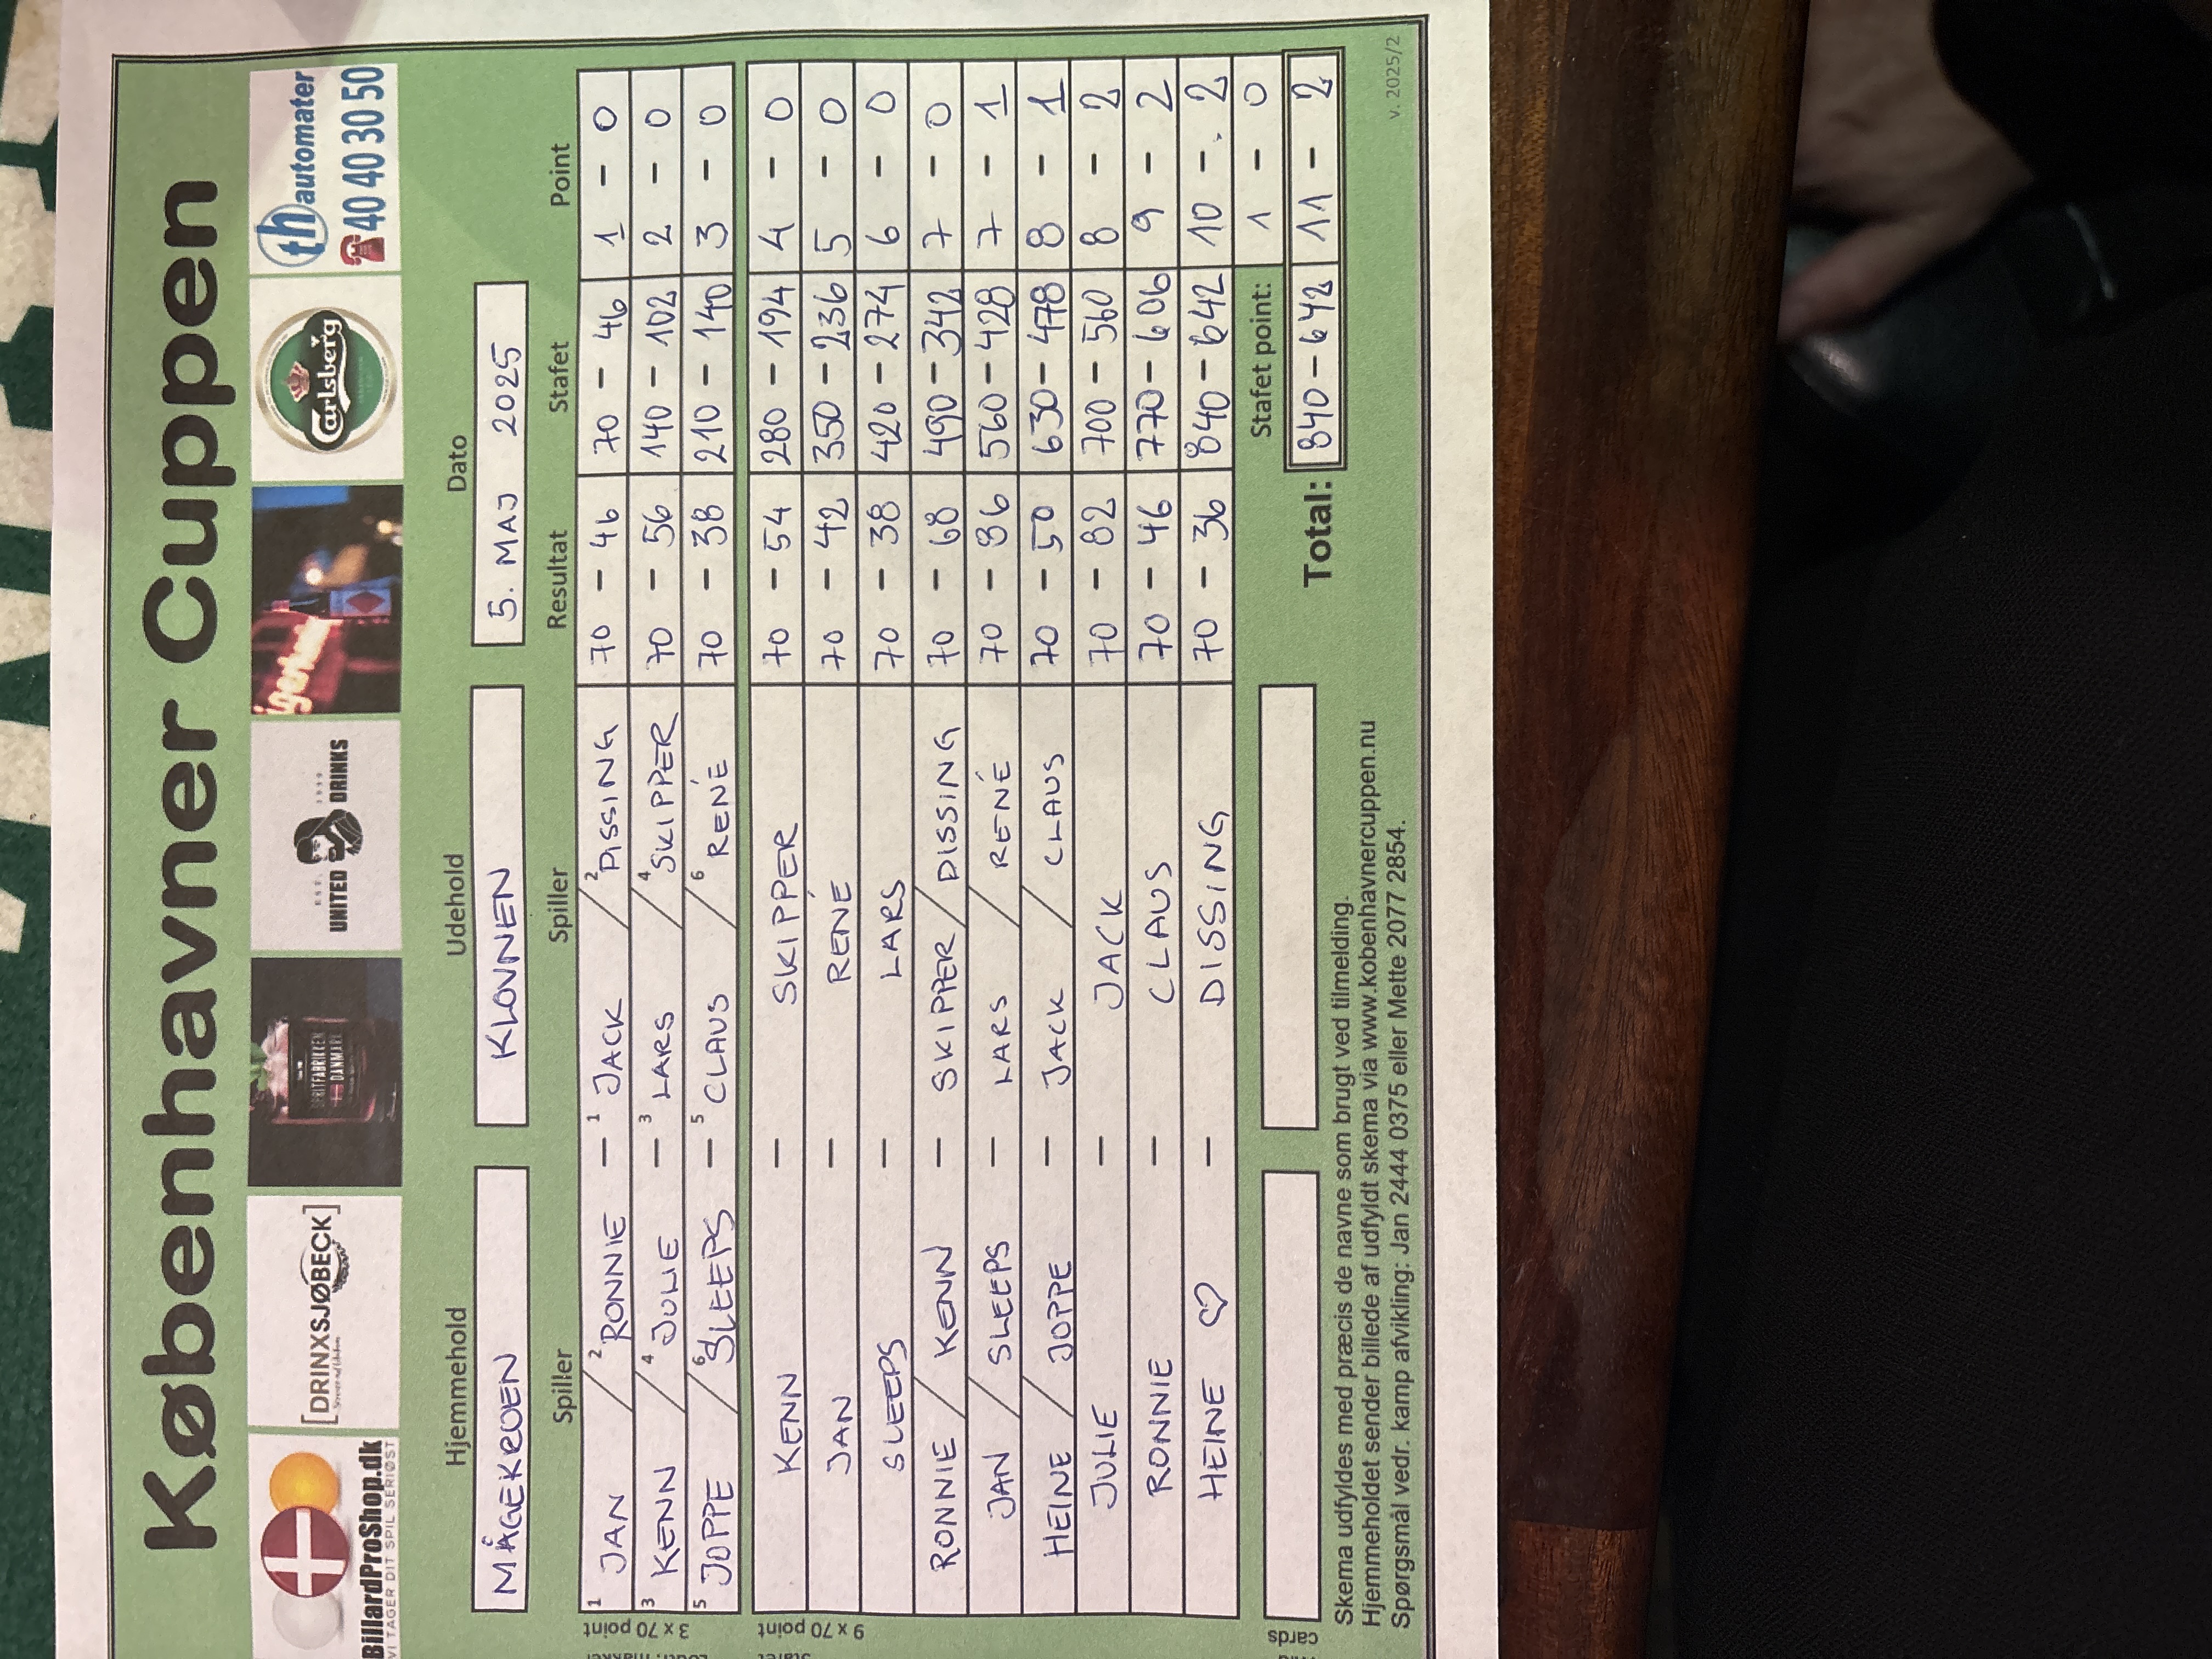 Københavner Cuppen
BillardProShop.dk
VI TAGER DIT SPIL SERIØST
[DRINXSJØBECK]
SPRITFABRIKKEN
DANMARK
UNITED DRINKS
Carlsberg
th automater
40 40 30 50
Hjemmehold Udehold Dato
MÅGEKROEN KLOVNEN 5. MAJ 2025
Spiller Spiller Resultat Stafet Point
3 x 70 point
1 JAN / 2 RONNIE - 1 JACK / 2 DISSING 70 - 46 70 - 46 1 - 0
3 KENN / 4 JULIE - 3 LARS / 4 SKIPPER 70 - 56 140 - 102 2 - 0
5 JOPPE / 6 SLEEPS - 5 CLAUS / 6 RENÉ 70 - 38 210 - 140 3 - 0
9 x 70 point
KENN - SKIPPER 70 - 54 280 - 194 4 - 0
JAN - RENÉ 70 - 42 350 - 236 5 - 0
SLEEPS - LARS 70 - 38 420 - 274 6 - 0
RONNIE / KENN - SKIPPER / DISSING 70 - 68 490 - 342 7 - 0
JAN / SLEEPS - LARS / RENÉ 70 - 86 560 - 428 7 - 1
HEINE / JOPPE - JACK / CLAUS 70 - 50 630 - 478 8 - 1
JULIE - JACK 70 - 82 700 - 560 8 - 2
RONNIE - CLAUS 70 - 46 770 - 606 9 - 2
HEINE ♡ - DISSING 70 - 36 840 - 642 10 - 2
cards
Stafet point: 1 - 0
Total: 840 - 642 11 - 2
Skema udfyldes med præcis de navne som brugt ved tilmelding.
Hjemmeholdet sender billede af udfyldt skema via www.kobenhavnercuppen.nu
Spørgsmål vedr. kamp afvikling: Jan 2444 0375 eller Mette 2077 2854.
v. 2025/2